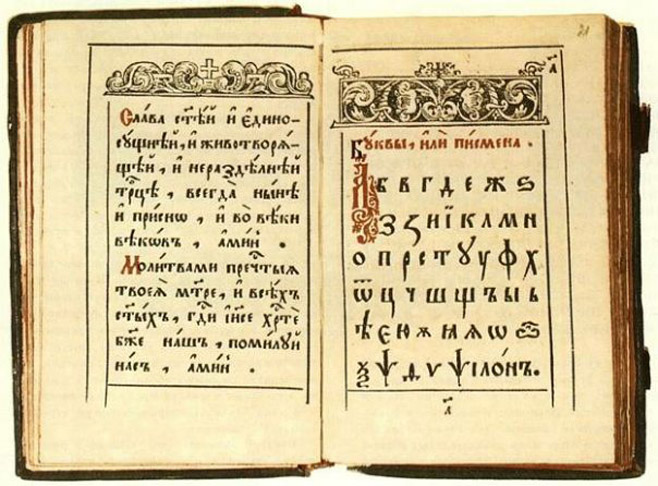 Сла́ва ст҃ѣ́й и҆ є҆дино-
сꙋ́щнѣй, и҆ животворѧ́-
щей, и҆ нераздѣ́лнѣй
трⷪ҇цѣ, всегда̀ ны́нѣ
и҆ при́снѡ, и҆ во̀ вѣ́ки
вѣкѡ́въ, а҆ми́нь.
Мл҃и́твами пречⷭ҇тыѧ
твоеѧ̀ мт҃ре, и҆ всѣ́хъ
ст҃ы́хъ, гдⷭ҇и і҆и҃се хрⷭ҇тѐ
бж҃е на́шъ, поми́лꙋй
на́съ, а҆ми́нь.
21
Бꙋ́квы, и҆лѝ писмена̀.
А Б В Г Д Е Ж Ѕ
З И Ї К Л М Н
О П Р С Т Ꙋ У Ф Х
Ѿ Ц Ч Ш Щ Ъ Ы Ь
Ѣ Є Ю Ѧ Ѡ
Ѯ Ѱ Ѵ ѱіло́нъ.